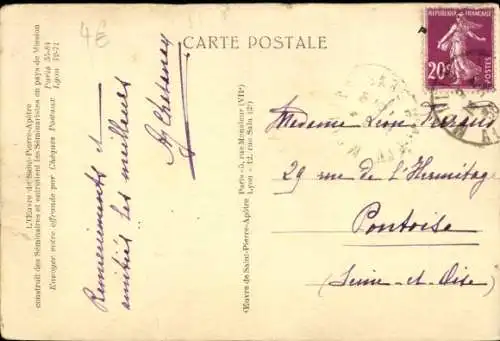 4€
CARTE POSTALE
RÉPUBLIQUE FRANÇAISE
20c
POSTES
L'Œuvre de Saint-Pierre-Apôtre
construit des Séminaires et entretient les Séminaristes en pays de Mission
Envoyez votre offrande par Chèques Postaux
Paris
Lyon
Remerciements et
amitiés les meilleurs
Œuvre de Saint-Pierre-Apôtre
Paris
rue Monsieur (VIIe)
Lyon - 12, rue Sala (2e)
Madame Léon
29 rue de l'Hermitage
Pontoise
(Seine-et-Oise)